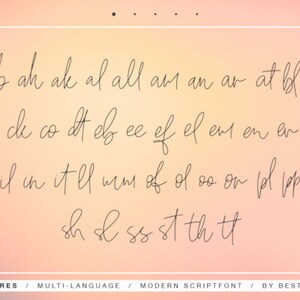 ah ak al all am an ar at bl
ck co dt eb ee ef el em en er
il in it ll mm of ol oo on pl pp
sh sl ss st th tt
RES / MULTI-LANGUAGE / MODERN SCRIPTFONT / BY BEST